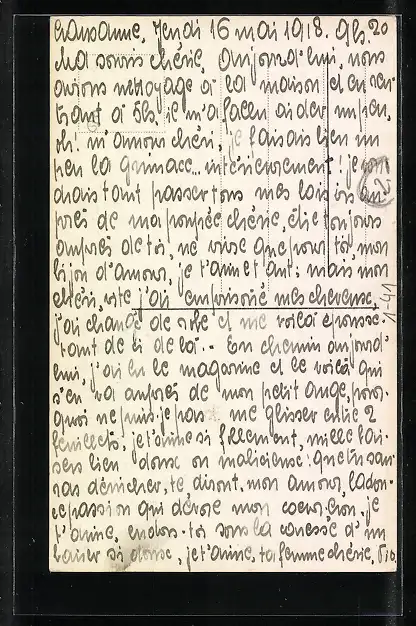 Lausanne, Jeudi 16 mai 1918. 9h.20
Ma souris chérie, Aujourd'hui, nous
avions nettoyage à la maison et en ren-
trant à 5h, il m'a fallu aider un peu,
oh! m'amour chéri, je faisais bien un
peu la grimace... intérieurement! je vou
drais tant passer tous mes loisirs au
près de ma poupée chérie, être toujours
auprès de toi, ne vivre que pour toi, mon
bijou d'amour, je t'aime tant; mais mon
chéri, vite j'ai emprisonné mes cheveux,
j'ai changé de robe et me voilà époussе-
tant de ci de là.. En chemin aujourd'
hui, j'ai lu le magazine et le voilà qui
s'en va auprès de mon petit ange, pour-
quoi ne puis-je pas me glisser entre 2
feuillets, je t'aime si follement, mille bai-
sers bien doux ou malicieux: que tu sau-
ras dénicher, te diront, mon amour, l'adora-
passion qui dévore mon coeur, je
t'aime, endors-toi sous la caresse d'un
baiser si doux, je t'aime, ta femme chérie,